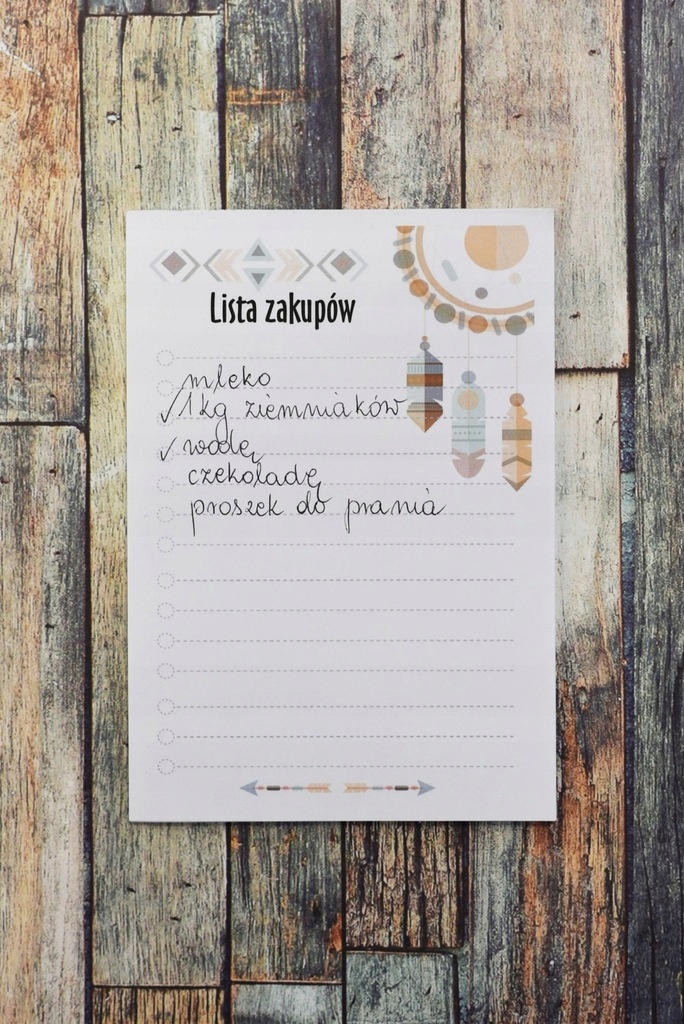 Lista zakupów
mleko
✓ 1 kg ziemniaków
✓ wodę
czekoladę
proszek do prania